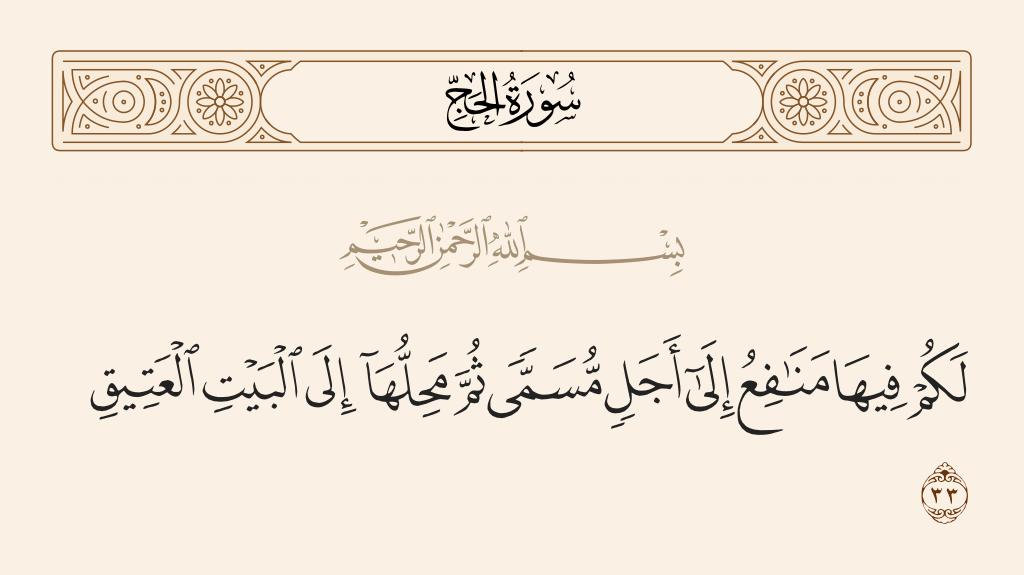 سُورَةُ الْحَجِّ
بِسْمِ ٱللَّهِ ٱلرَّحْمَٰنِ ٱلرَّحِيمِ
لَكُمْ فِيهَا مَنَـٰفِعُ إِلَىٰٓ أَجَلٍ مُّسَمًّى ثُمَّ مَحِلُّهَآ إِلَى ٱلْبَيْتِ ٱلْعَتِيقِ
٣٣